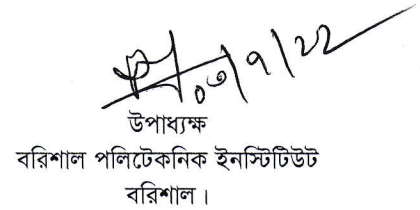 ০৩/৭/২২
উপাধ্যক্ষ
বরিশাল পলিটেকনিক ইনস্টিটিউট
বরিশাল।